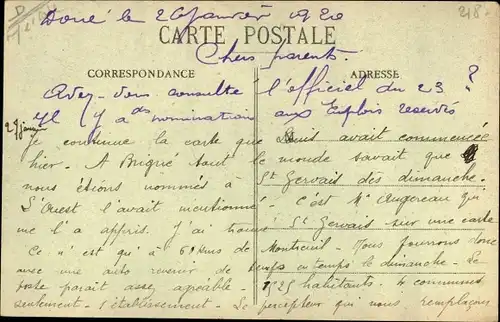 218-
Doué le 26 Janvier 1920
CARTE POSTALE
Chers parents.
CORRESPONDANCE
ADRESSE
Avez-vous consulté l'officiel du 23 ?
Il y a des nominations aux Emplois réservés
27 janv Je continue la carte que Louis avait commencée
hier. A Brigné tout le monde savait que
nous étions nommés à St Gervais dès dimanche.
L'Ouest l'avait mentionné - C'est Me Augereau qui
me l'a appris. J'ai trouvé St Gervais sur une carte
Ce n'est qu'à 6 kms de Montreuil - Nous pourrons donc
avec une auto revenir de temps en temps le dimanche - Le
poste parait assez agréable - 1525 habitants. 4 communes
seulement - 1 établissement - Le percepteur qui nous remplaçons